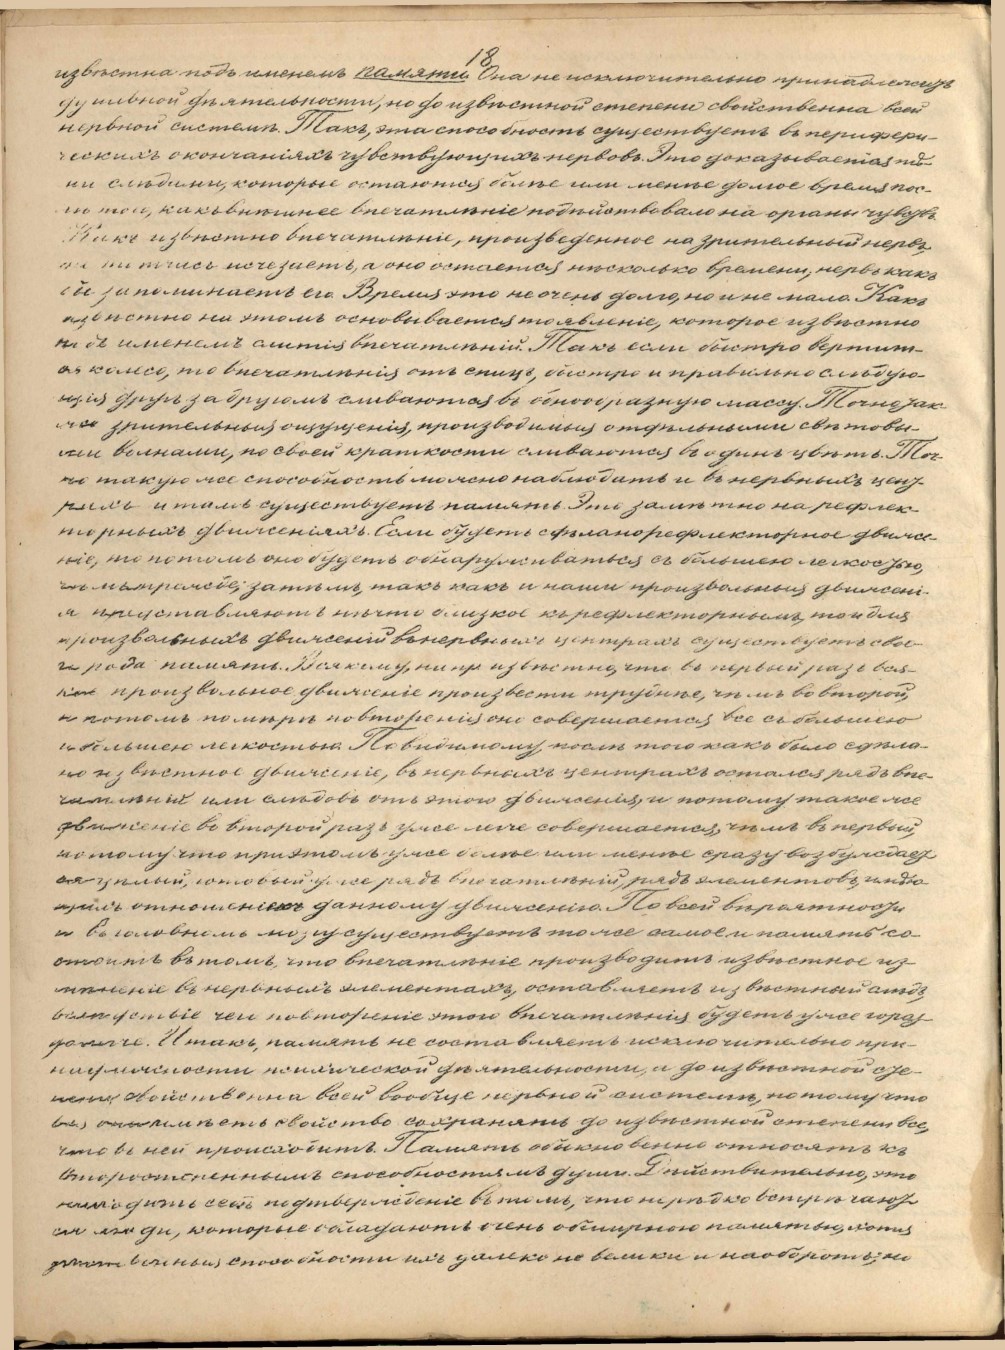 18
извѣстна подъ именемъ памяти. Она не исключительно принадлежитъ
душевной дѣятельности, но до извѣстной степени свойственна всей
нервной системѣ. Такъ, эта способность существуетъ въ перифери-
ческихъ окончаніяхъ чувствующихъ нервовъ. Это доказывается тѣ-
ми слѣдами, которые остаются болѣе или менѣе долгое время пос-
лѣ того, какъ внѣшнее впечатлѣніе подѣйствовало на органы чувствъ.
Какъ извѣстно впечатлѣніе, произведенное на зрительный нервъ,
не тотчасъ исчезаетъ, а оно остается нѣсколько времени, нервъ какъ
бы запоминаетъ его. Время это не очень долго, но и не мало. Какъ
извѣстно на этомъ основывается то явленіе, которое извѣстно
подъ именемъ слитія впечатлѣній. Такъ если быстро вертит-
ся колесо, то впечатлѣнія отъ спицъ, быстро и правильно слѣдую-
щія другъ за другомъ сливаются въ однообразную массу. Точно так
же зрительныя ощущенія, производимыя отдѣльными свѣтовы-
ми волнами, по своей краткости сливаются въ одинъ цвѣтъ. Точ-
но такую же способность можно наблюдать и въ нервныхъ цент
рахъ и тамъ существуетъ память. Это замѣтно на рефлек-
торныхъ движеніяхъ. Если будетъ сдѣлано рефлекторное движе-
ніе, то потомъ оно будетъ обнаруживаться съ большею легкостью,
чѣмъ прежде; затѣмъ, такъ какъ и наши произвольныя движені-
я представляютъ нѣчто близкое къ рефлекторнымъ, то и для
произвольныхъ движеній въ нервныхъ центрахъ существуетъ свое-
го рода память. Всякому, напр. извѣстно, что въ первый разъ вся-
кое произвольное движеніе произвести труднѣе, чѣмъ во второй,
и потомъ по мѣрѣ повторенія оно совершается все съ большею
и большею легкостью. Повидимому, послѣ того какъ было сдѣла-
но извѣстное движеніе, въ нервныхъ центрахъ остался рядъ впе-
чатлѣній или слѣдовъ отъ этого движенія, и потому такое же
движеніе во второй разъ уже легче совершается, чѣмъ въ первый,
потому что при этомъ уже болѣе или менѣе сразу возбуждает
ся цѣлый, готовый уже рядъ впечатлѣній, рядъ элементовъ,
отношеніе къ данному движенію. По всей вѣроятности
и въ головномъ мозгу существуетъ то же самое и память со-
стоитъ въ томъ, что впечатлѣніе производитъ извѣстное из
мѣненіе въ нервныхъ элементахъ, оставляетъ извѣстный слѣдъ,
вслѣдствіе чего повтореніе этого впечатлѣнія будетъ уже гораз-
до легче. Итакъ, память не составляетъ исключительно при-
надлежности психической дѣятельности, а до извѣстной сте-
пени свойственна всей вообще нервной системѣ, потому что
вся она имѣетъ свойство сохранять до извѣстной степени все,
что въ ней происходитъ. Память обыкновенно относятъ къ
второстепеннымъ способностямъ души. Дѣйствительно, это
находитъ себѣ подтвержденіе въ томъ, что нерѣдко встрѣчают
ся люди, которые обладаютъ очень обширною памятью, хотя
способности ихъ далеко не велики и наоборотъ; но